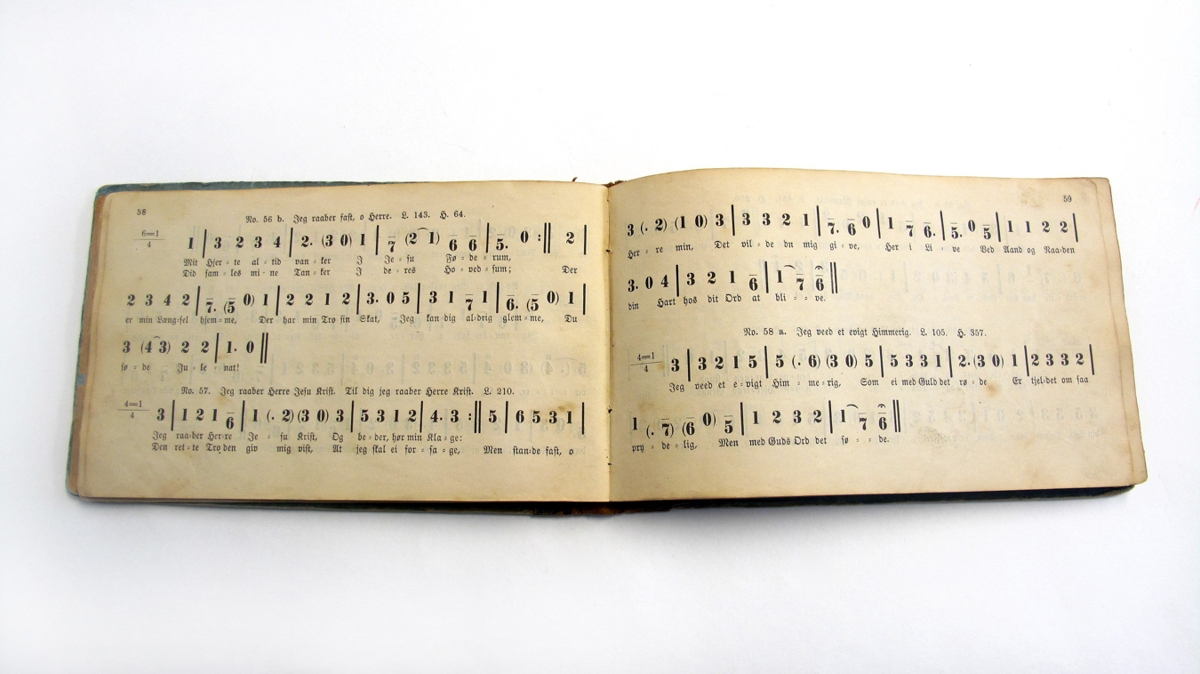 58
No. 56 b. Jeg raaber fast, o Herre. L. 143. H. 64.
6=1
4
1 | 3 2 3 4 | 2. (3 0) 1 | 7 (2 1) 6 6 | 5. 0 :|| 2 |
Mit Hjer=te al=tid van=ker I Je=su Fø=de=rum,
Did sam=les mi=ne Tan=ker I de=res Ho=ved=sum; Der
2 3 4 2 | 7. (5 0) 1 | 2 2 1 2 | 3. 0 5 | 3 1 7 1 | 6. (5 0) 1 |
er min Læng=sel hjem=me, Der har min Tro sin Skat, Jeg kan dig al=drig glem=me, Du
3 (4 3) 2 2 | 1. 0 ||
sø=de Ju=le=nat!
No. 57. Jeg raaber Herre Jesu Krist. Til dig jeg raaber Herre Krist. L. 210.
4=1
4
3 | 1 2 1 6 | 1 (. 2) (3 0) 3 | 5 3 1 2 | 4. 3 :|| 5 | 6 5.3.1 |
Jeg raa=ber Her=re Je=su Krist, Og be=der, hør min Kla=ge:
Den ret=te Tro den giv mig vist, At jeg skal ei for=sa=ge, Men stan=de fast, o
59
3 (. 2) (1 0) 3 | 3 3 2 1 | 7. 6 0 | 1 7 6. | 5. 0 5 | 1 1 2 2 |
Her=re min, Det vil=de du mig gi=ve, Her i Li=ve Ved Aand og Naa=den
3. 0 4 | 3 2 1 6 | 1 7 6 ||
din Hart hos dit Ord at bli=ve.
No. 58 a. Jeg veed et evigt Himmerig. L. 105. H. 357.
4=1
4
3 | 3 2 1 5 | 5 (. 6) (3 0) 5 | 5 3 3 1 | 2.(3 0) 1 | 2 3 3 2 |
Jeg veed et e=vigt Him=me=rig, Som ei med Guld det rø=de Er tjel=det om saa
1 (. 7) (6 0) 5 | 1 2 3 2 | 1 7 6 ||
pry=de=lig, Men med Guds Ord det sø=de.